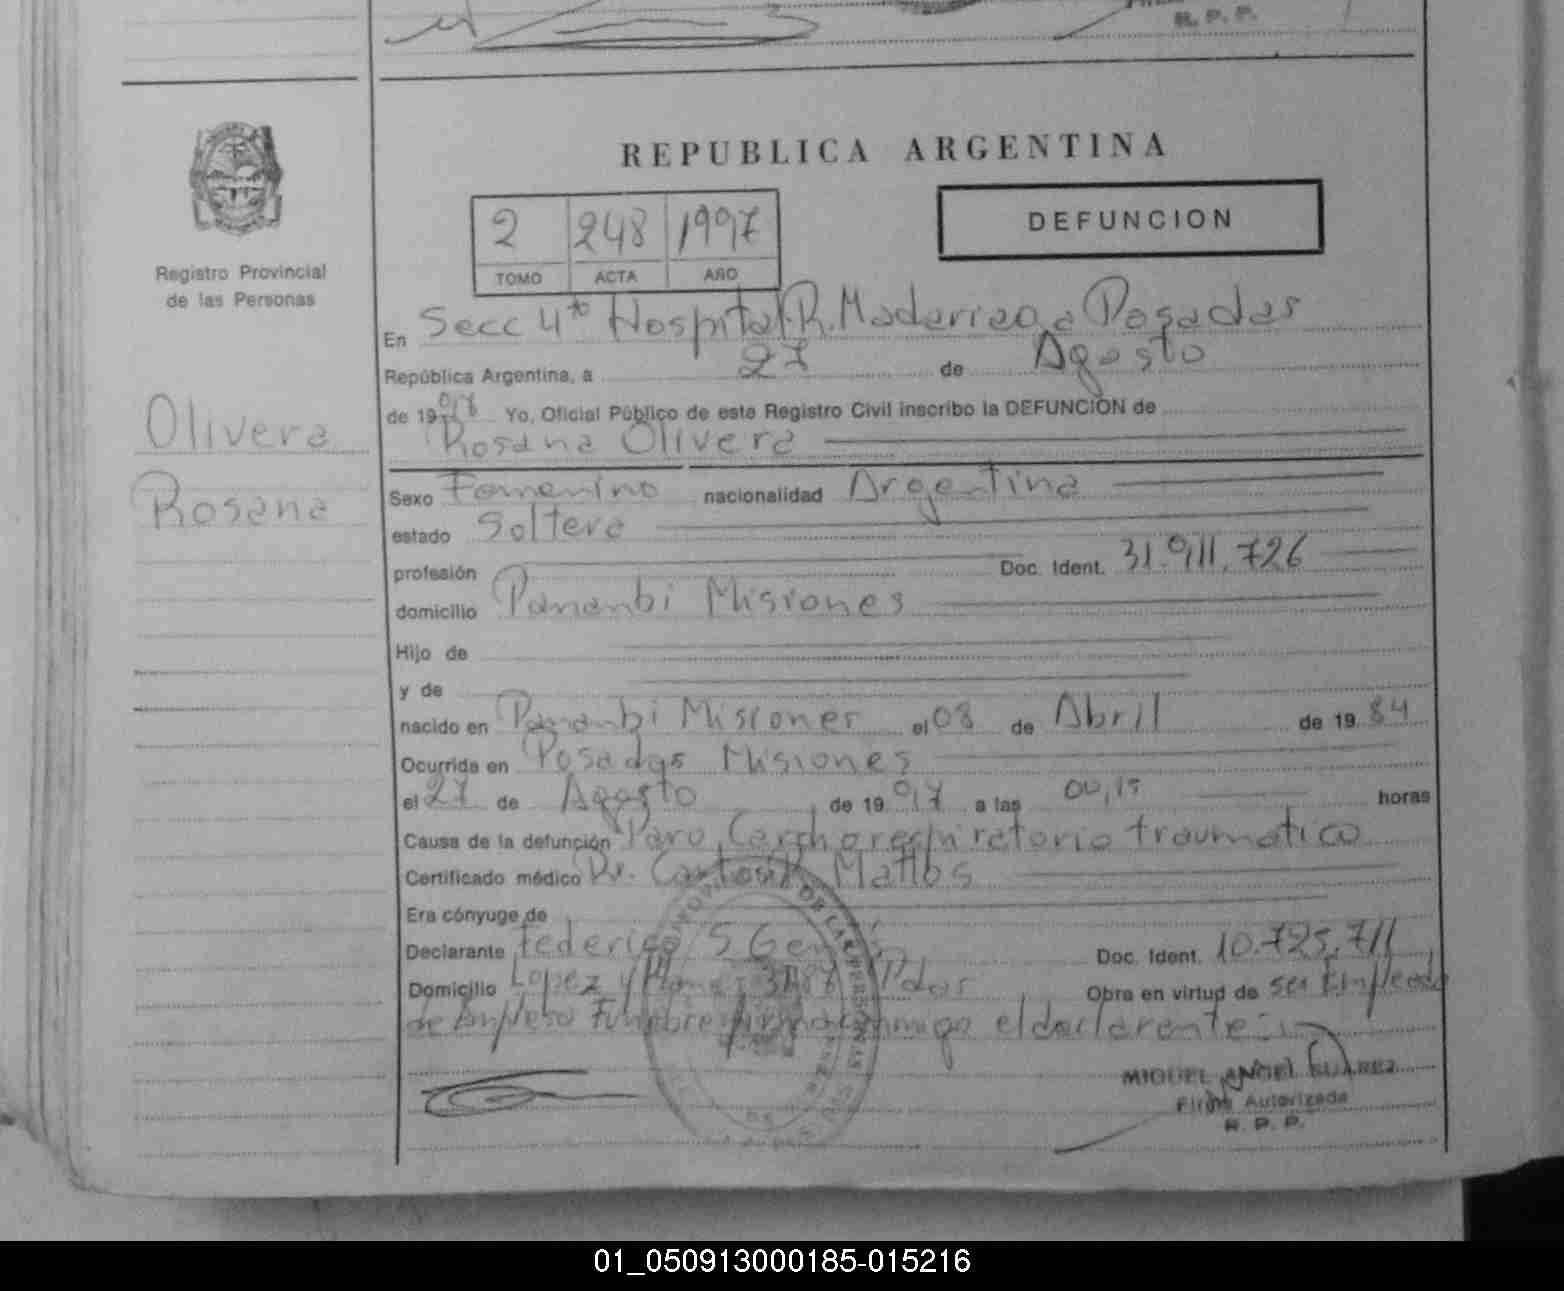 R. P. P.
REPUBLICA ARGENTINA
2 248 1997
TOMO ACTA AÑO
DEFUNCION
Registro Provincial
de las Personas
Olivera
Rosana
En Secc 4ta Hospital R. Madariaga Posadas
República Argentina, a 27 de Agosto
de 1997 Yo, Oficial Público de este Registro Civil inscribo la DEFUNCION de
Rosana Olivera
Sexo Femenino nacionalidad Argentina
estado Soltera
profesión Doc. Ident. 31.911.726
domicilio Panambi Misiones
Hijo de
y de
nacido en Panambi Misiones el 08 de Abril de 19 84
Ocurrida en Posadas Misiones
el 27 de Agosto de 19 97 a las 00,15 horas
Causa de la defunción Paro Cardiorespiratorio traumatico
Certificado médico Dr. Carlos Mattos
Era cónyuge de
Declarante Federico S Doc. Ident. 10.725.711
Domicilio Lopez y Planes Pdas Obra en virtud de ser Empleado
de Empresa Funebre firma conmigo el declarante
MIGUEL ANGEL SUAREZ
Firma Autorizada
R. P. P.
01_050913000185-015216